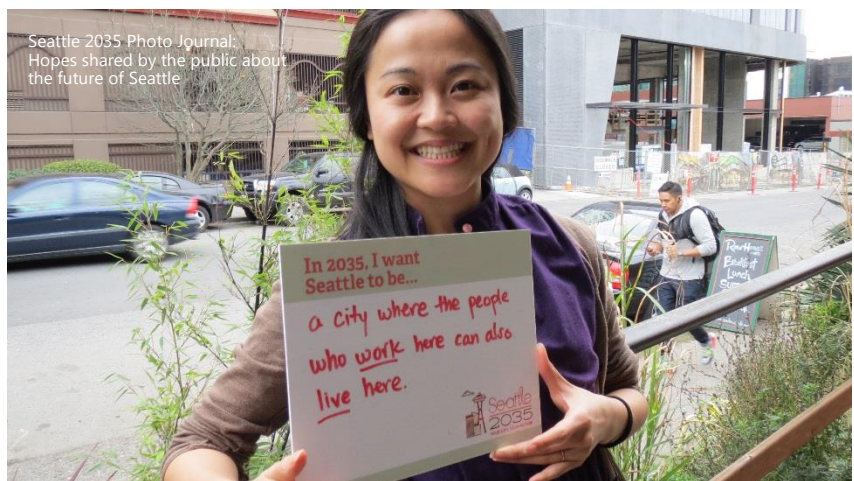 Seattle 2035 Photo Journal:
Hopes shared by the public about
the future of Seattle
In 2035, I want
Seattle to be...
a city where the people
who work here can also
live here.
Seattle
2035